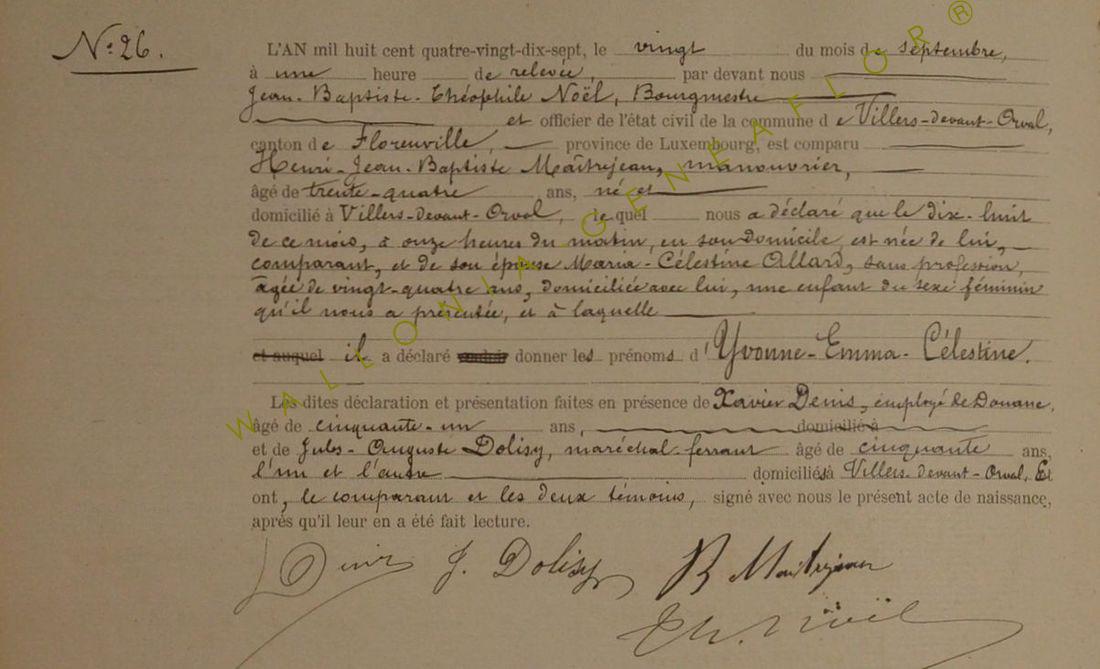 N° 26.
L'AN mil huit cent quatre-vingt-dix-sept, le vingt du mois de septembre,
à une heure de relevée, par devant nous
Jean-Baptiste-Théophile Noël, Bourgmestre
et officier de l'état civil de la commune de Villers-devant-Orval,
canton de Florenville, province de Luxembourg, est comparu
Henri-Jean-Baptiste Maîtrejean, manouvrier,
âgé de trente-quatre ans, né et
domicilié à Villers-devant-Orval, lequel nous a déclaré que le dix-huit
de ce mois, à onze heures du matin, en son domicile, est née de lui,
comparant, et de son épouse Maria-Célestine Allard, sans profession,
âgée de vingt-quatre ans, domiciliée avec lui, une enfant du sexe féminin
qu'il nous a présentée, et à laquelle
et auquel il a déclaré donner les prénoms d'Yvonne-Emma-Célestine.
Les dites déclaration et présentation faites en présence de Xavier Denis, employé de Douane,
âgé de cinquante-un ans, domicilié à
et de Jules-Auguste Dolisy, maréchal-ferrant âgé de cinquante ans,
l'un et l'autre domiciliés à Villers-devant-Orval, Et
ont, le comparant et les deux témoins, signé avec nous le présent acte de naissance,
après qu'il leur en a été fait lecture.
Denis J. Dolisy B Maitrejean
Th. Noël
WALLONIA GENEAFLOR®